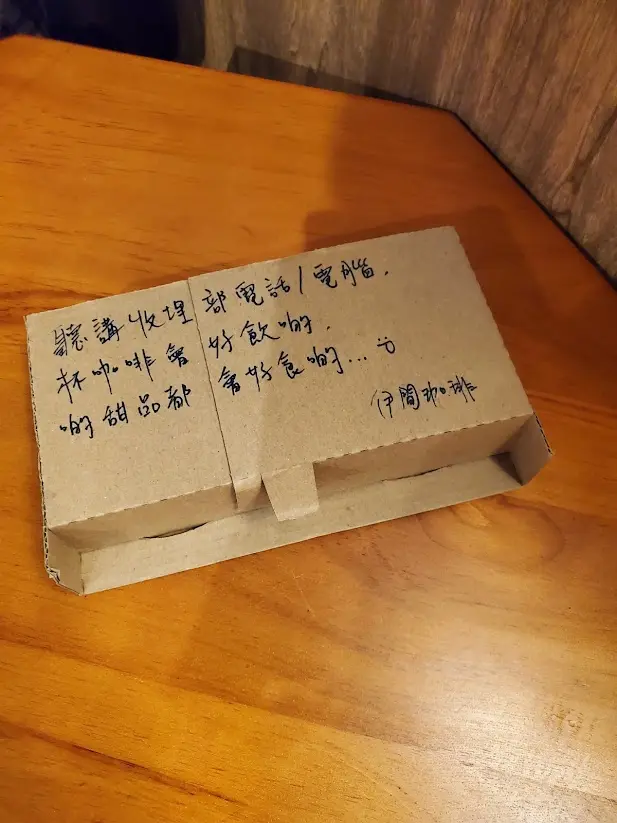 聽講收埋部電話/電腦.
杯咖啡會好飲啲.
啲甜品都會好食啲...
伊間咖啡